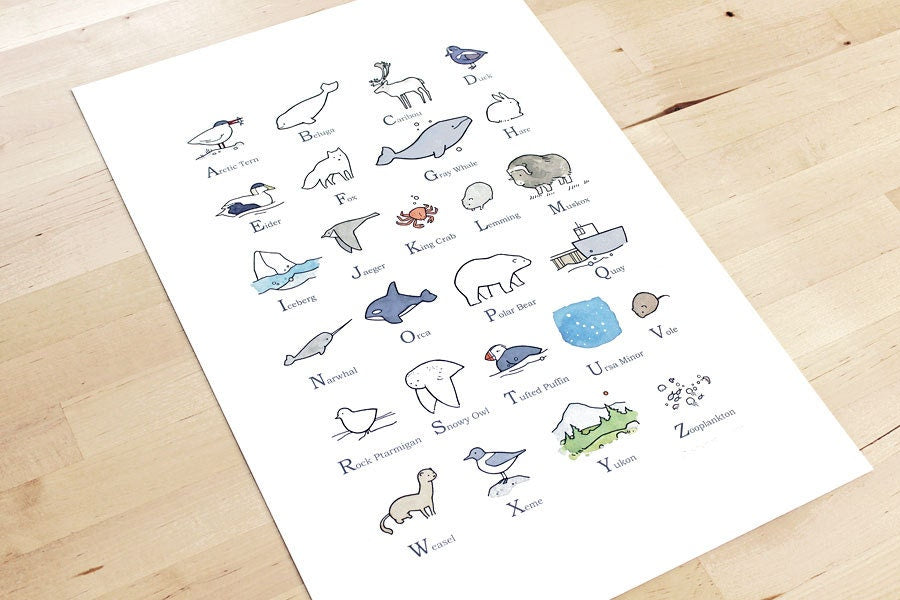 Arctic Tern
Beluga
Caribou
Duck
Eider
Fox
Gray Whale
Hare
Iceberg
Jaeger
King Crab
Lemming
Muskox
Narwhal
Orca
Polar Bear
Quay
Rock Ptarmigan
Snowy Owl
Tufted Puffin
Ursa Minor
Vole
Weasel
Xeme
Yukon
Zooplankton